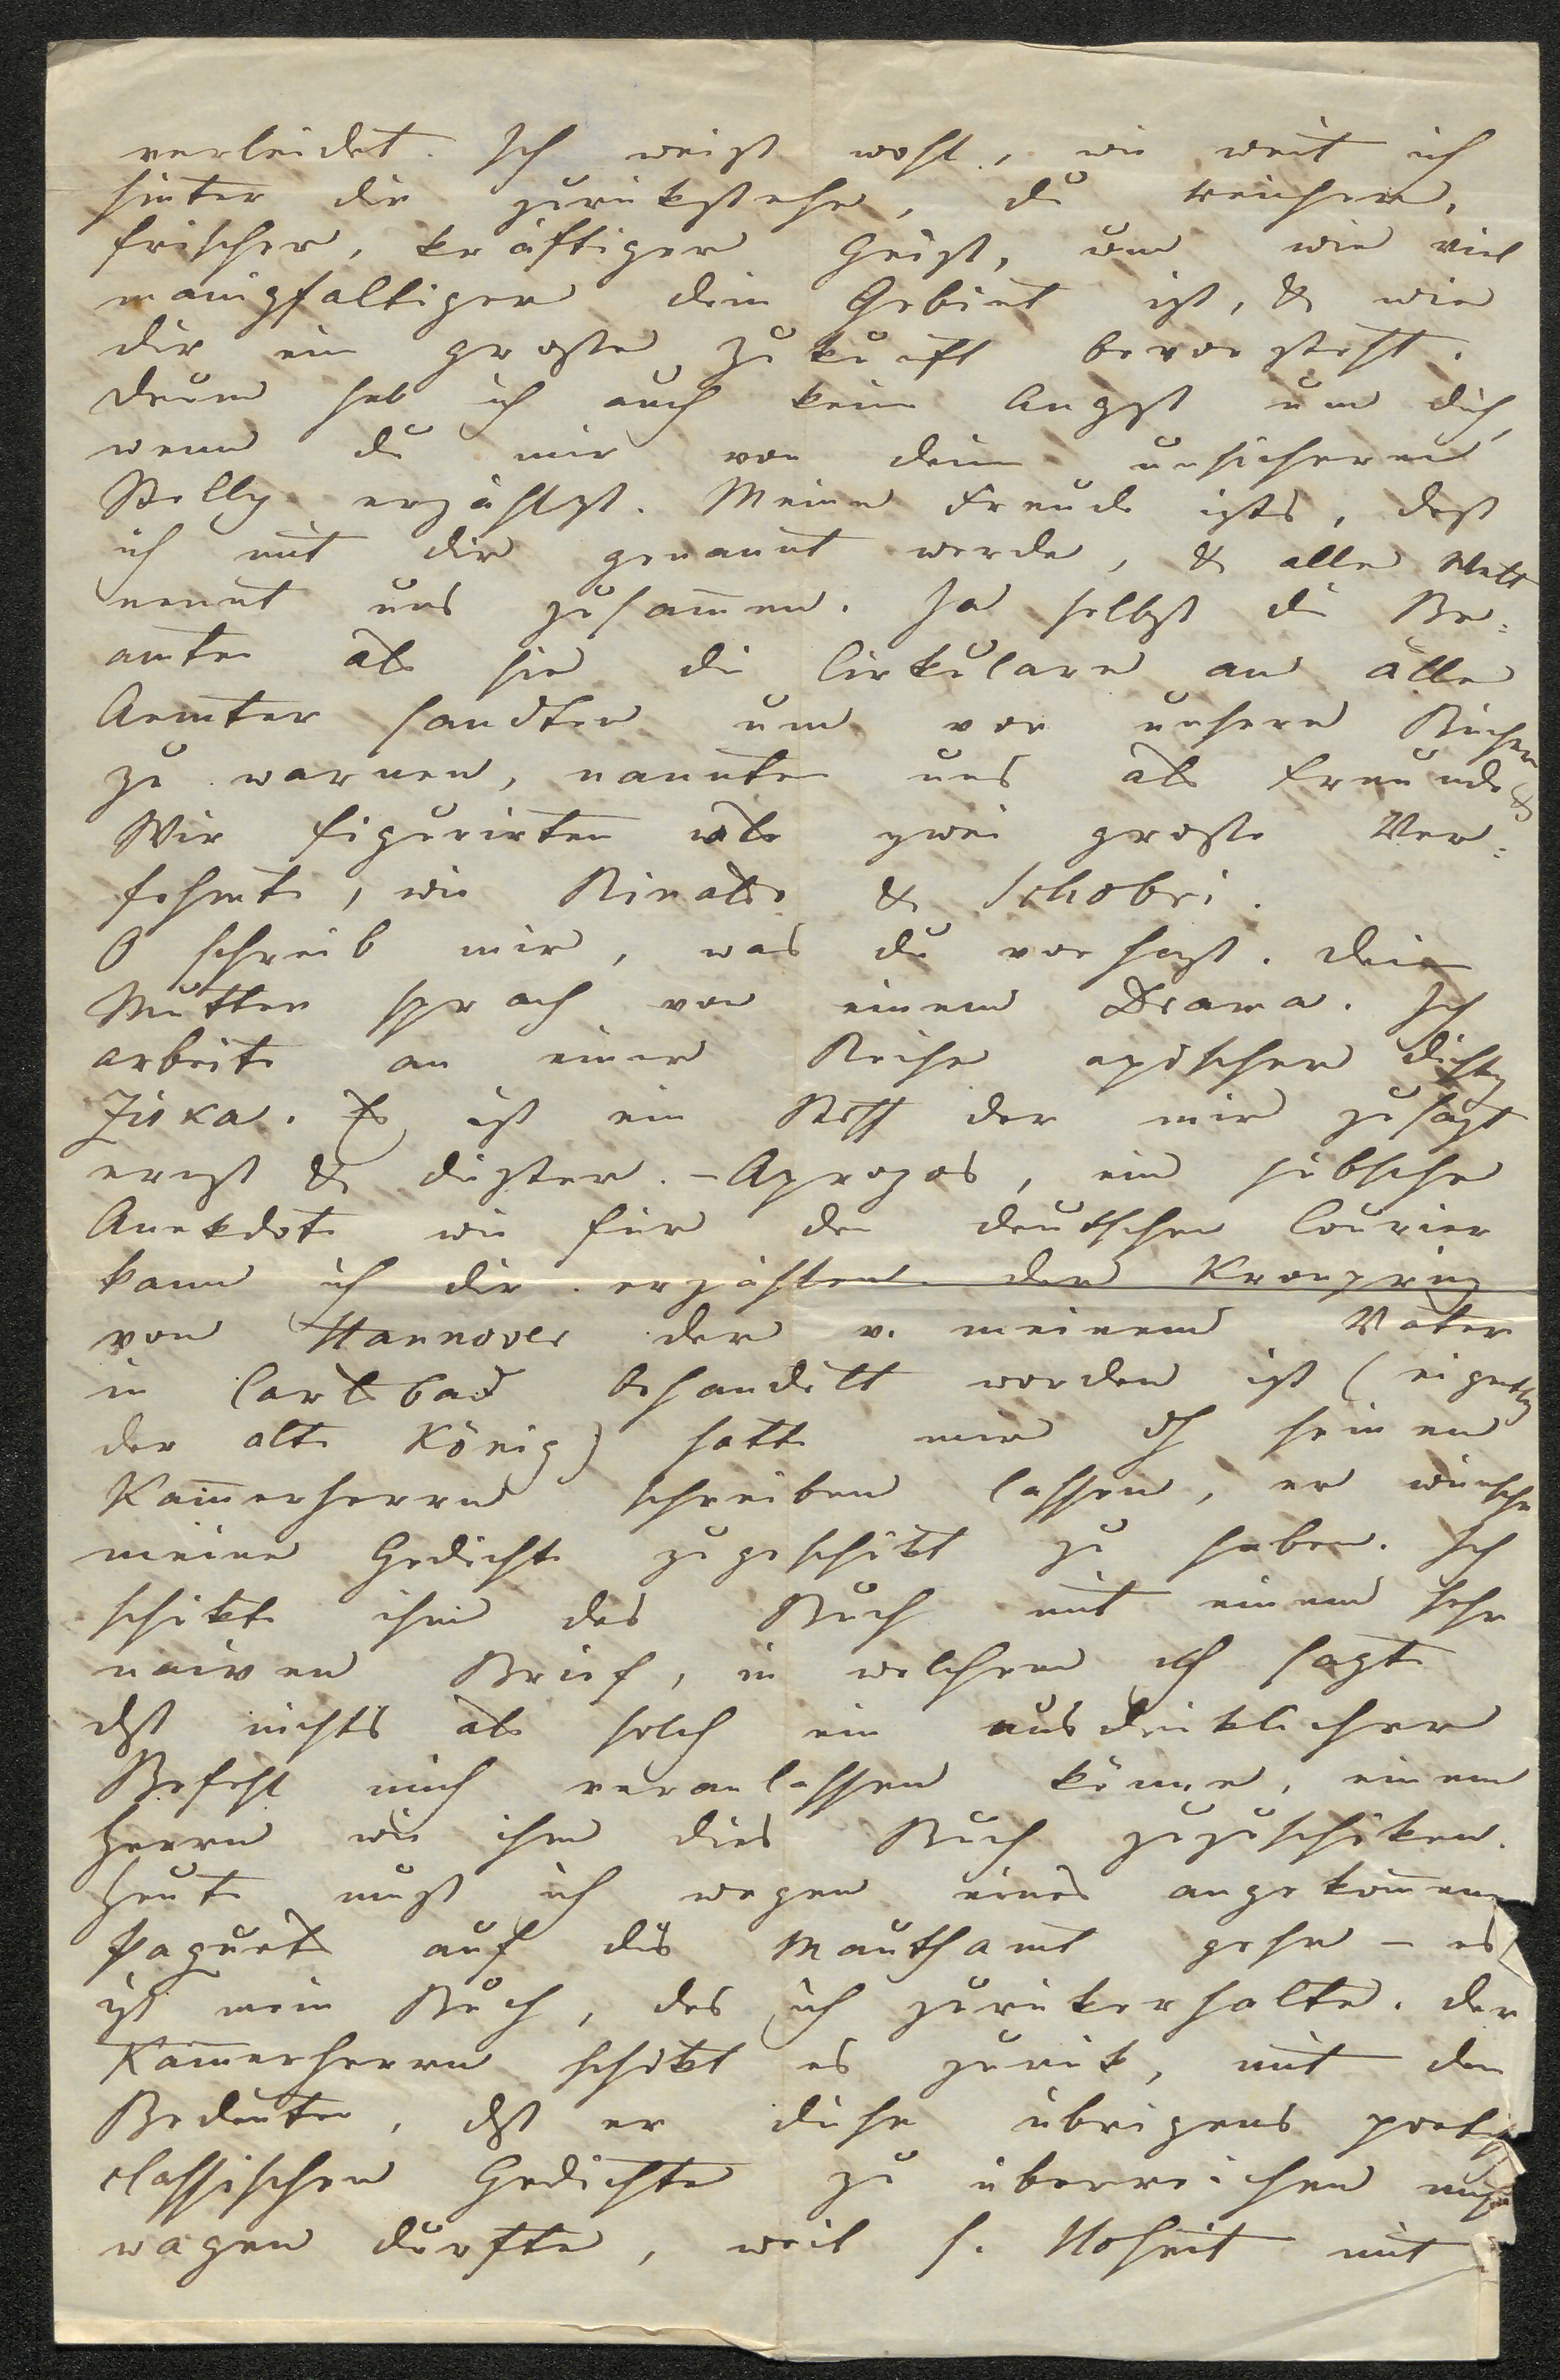 verleidet. Ich weiß wohl, wie weit ich
hinter dir zurükstehe, du reicher,
frischer, kräftiger Geist, um wie viel
manigfaltiger dein Gebiet ist, & wie
dir ein große Zukunft bevorsteht.
Drum hab ich auch keine Angst um dich,
wenn du mir von deine unsicheren
Stellg erzählst. Meine Freude ists, daß
ich mit dir genannt werde, & alle Welt
nennt uns zusam̅en. Ja selbst die Be=
amten als sie die Cirkulare an alle
Aemter sandten um vor unsern Büchern
zu warnen, nannten uns als Freunde &
Wir figurirten als zwei große Ver=
fehmte, wie Rinaldo & Schobri.
O schreib mir, was du vor hast. Deine
Mutter sprach von einem Drama. Ich
arbeite an einer Reihe epischer Dichtg
Ziska. Es ist ein Stoff der mir zusagt
ernst & düster. – Apropos, eine hübsche
Anekdote wie für den deutschen Courier
kann ich dir erzählen. Der Kronprinz
von Hannover der v. meinem Vater
in Carlsbad behandelt worden ist (eigentlg
der alte König) hatte mir dh seinen
Kam̅erherrn schreiben lassen, er wünsche
meine Gedichte zugeschikt zu haben. Ich
schikte ihm das Buch mit einem sehr
naiven Brief, in welchem ich sagte
dß nichts als solch ein ausdrüklicher
Befehl mich veranlassen könne, einem
Herrn wie ihm dies Buch zuzuschiken.
Heute muß ich wegen eines angekom̅enen
Paquets auf das Mauthamt gehen – es
ist mein Buch, das ich zurükerhalte. Der
Kam̅erherrn schikt es zurük, mit dem
Bedeuten, dß er diese übrigens poetisch
classischen Gedichte zu überreichen nicht
wagen durfte, weil s. Hoheit mit